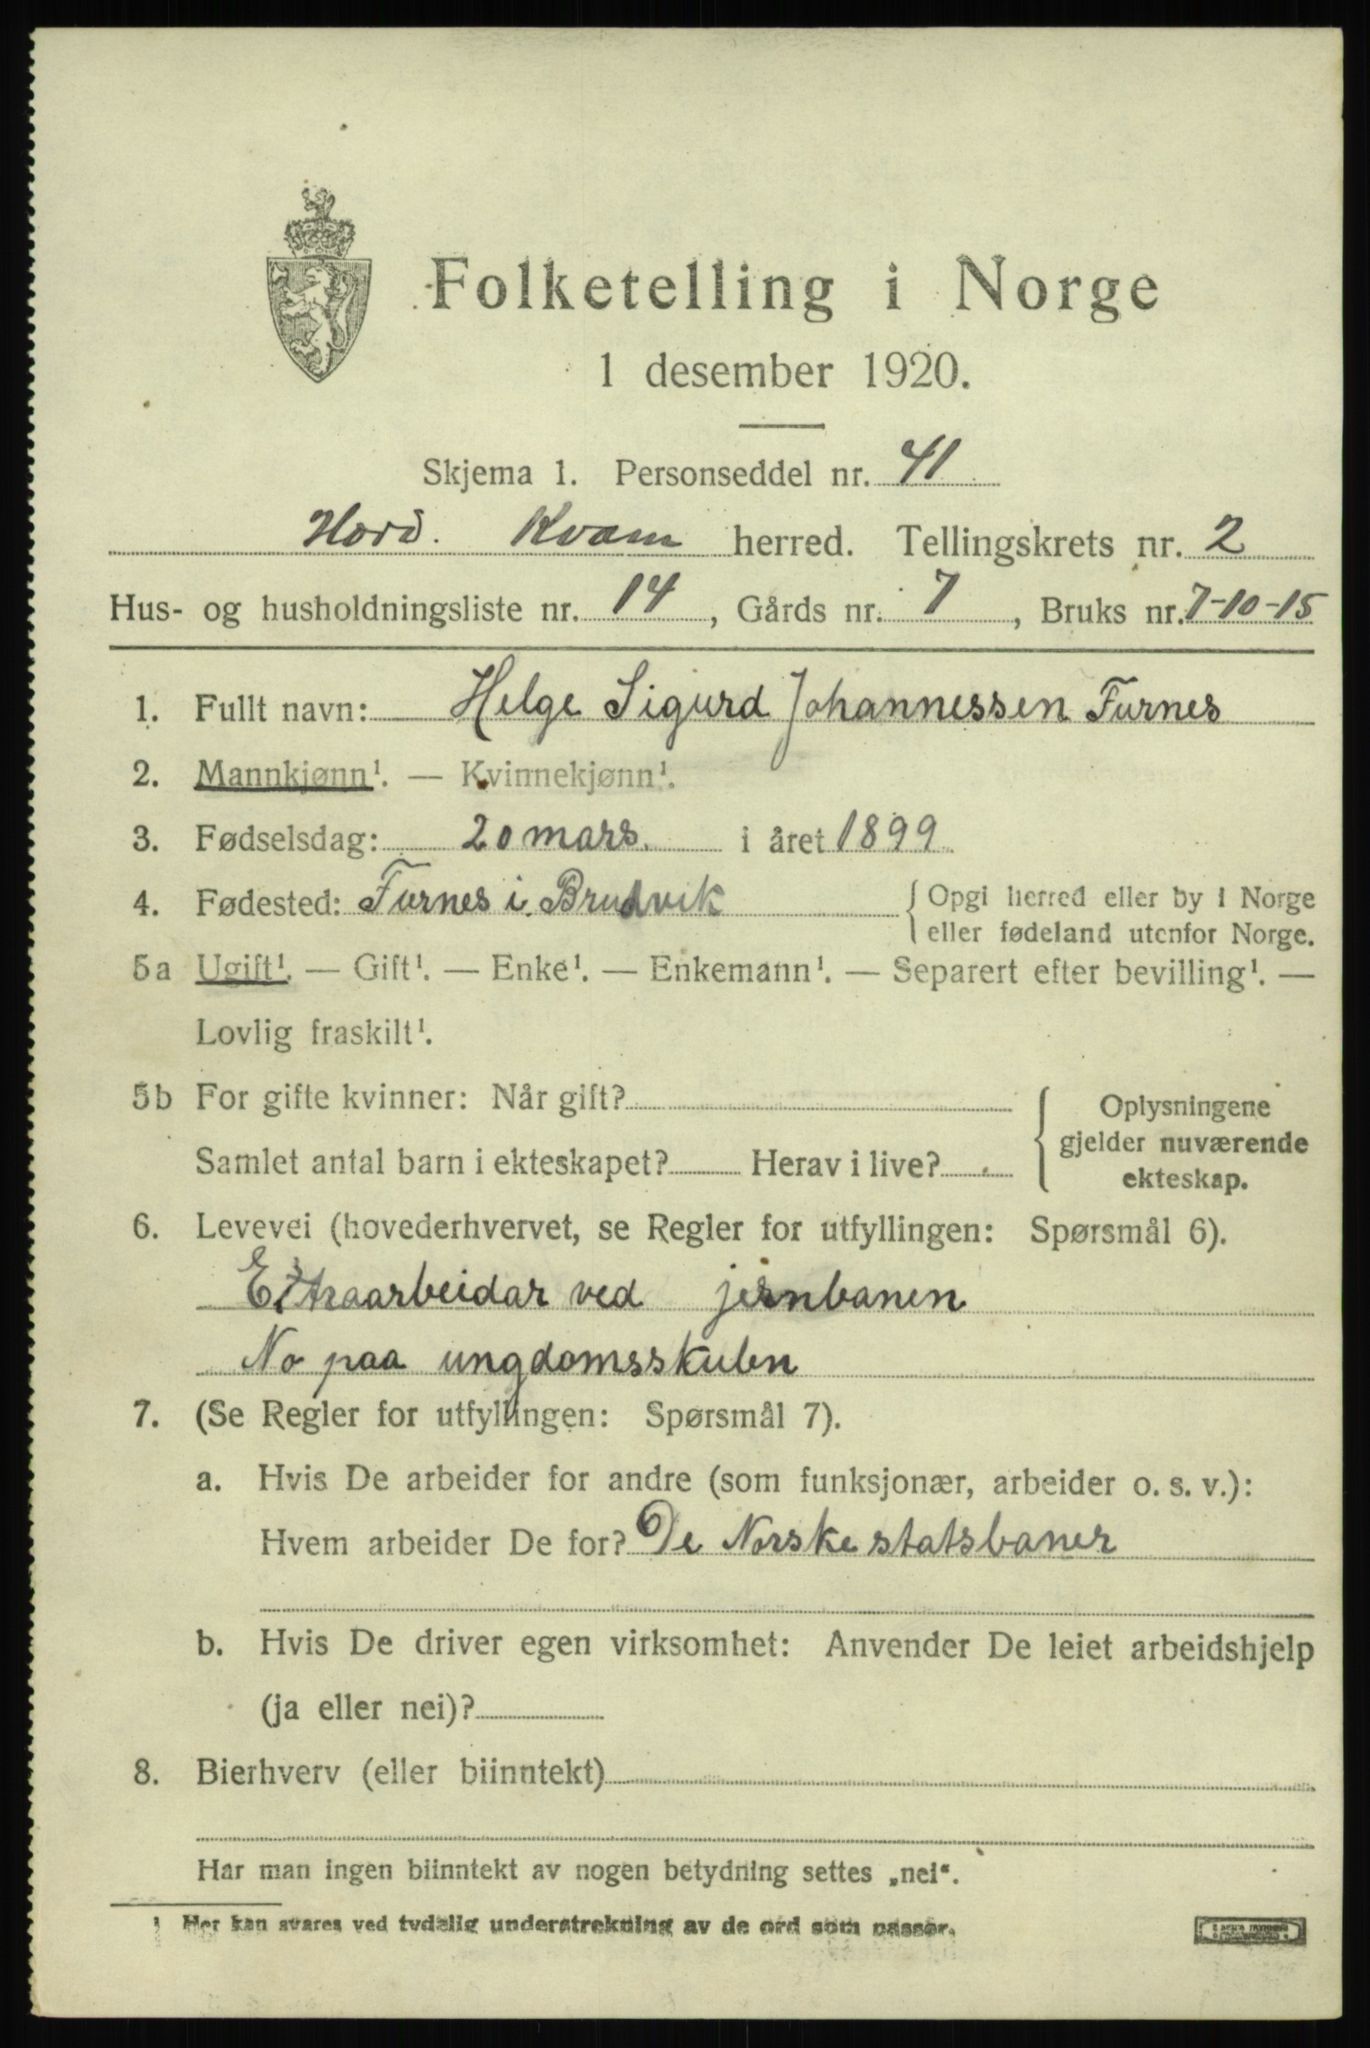 Folketelling i Norge
1 desember 1920.
Skjema 1. Personseddel nr. 41
Hord. Kvam herred. Tellingskrets nr. 2
Hus- og husholdningsliste nr. 14, Gårds nr. 7, Bruks nr. 7-10-15
1. Fullt navn: Helge Sigurd Johannessen Furnes
2. Mannkjønn¹. — Kvinnekjønn¹.
3. Fødselsdag: 20 mars. i året 1899
4. Fødested: Furnes i Brudvik { Opgi herred eller by i Norge
eller fødeland utenfor Norge.
5a Ugift¹. — Gift¹. — Enke¹. — Enkemann¹. — Separert efter bevilling¹. —
Lovlig fraskilt¹.
5b For gifte kvinner: Når gift? { Oplysningene
gjelder nuværende
Samlet antal barn i ekteskapet? Herav i live?
ekteskap.
6. Levevei (hovederhvervet, se Regler for utfyllingen: Spørsmål 6).
Extraarbeidar ved jernbanen
No paa ungdomsskulen
7. (Se Regler for utfyllingen: Spørsmål 7).
a. Hvis De arbeider for andre (som funksjonær, arbeider o. s. v.):
Hvem arbeider De for? De Norske statsbaner
b. Hvis De driver egen virksomhet: Anvender De leiet arbeidshjelp
(ja eller nei)?
8. Bierhverv (eller biinntekt)
Har man ingen biinntekt av nogen betydning settes „nei“.
¹ Her kan svares ved tydelig understrekning av de ord som passer.